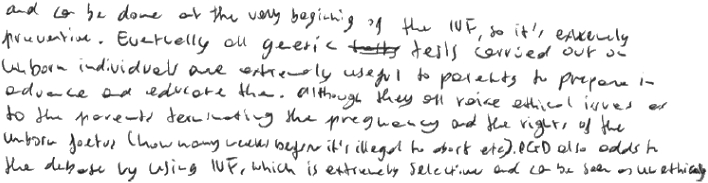 and can be done at the very beginning of the IVF, so it's extremely
preventive. Eventually all genetic tests carried out on
unborn individuals are extremely useful to parents to prepare in
advance and educate them. Although they all raise ethical issues as
to the parents terminating the pregnancy and the rights of the
unborn foetus (how many weeks before it's illegal to abort etc). PGD also adds to
the debate by using IVF, which is extremely selective and can be seen as unethical